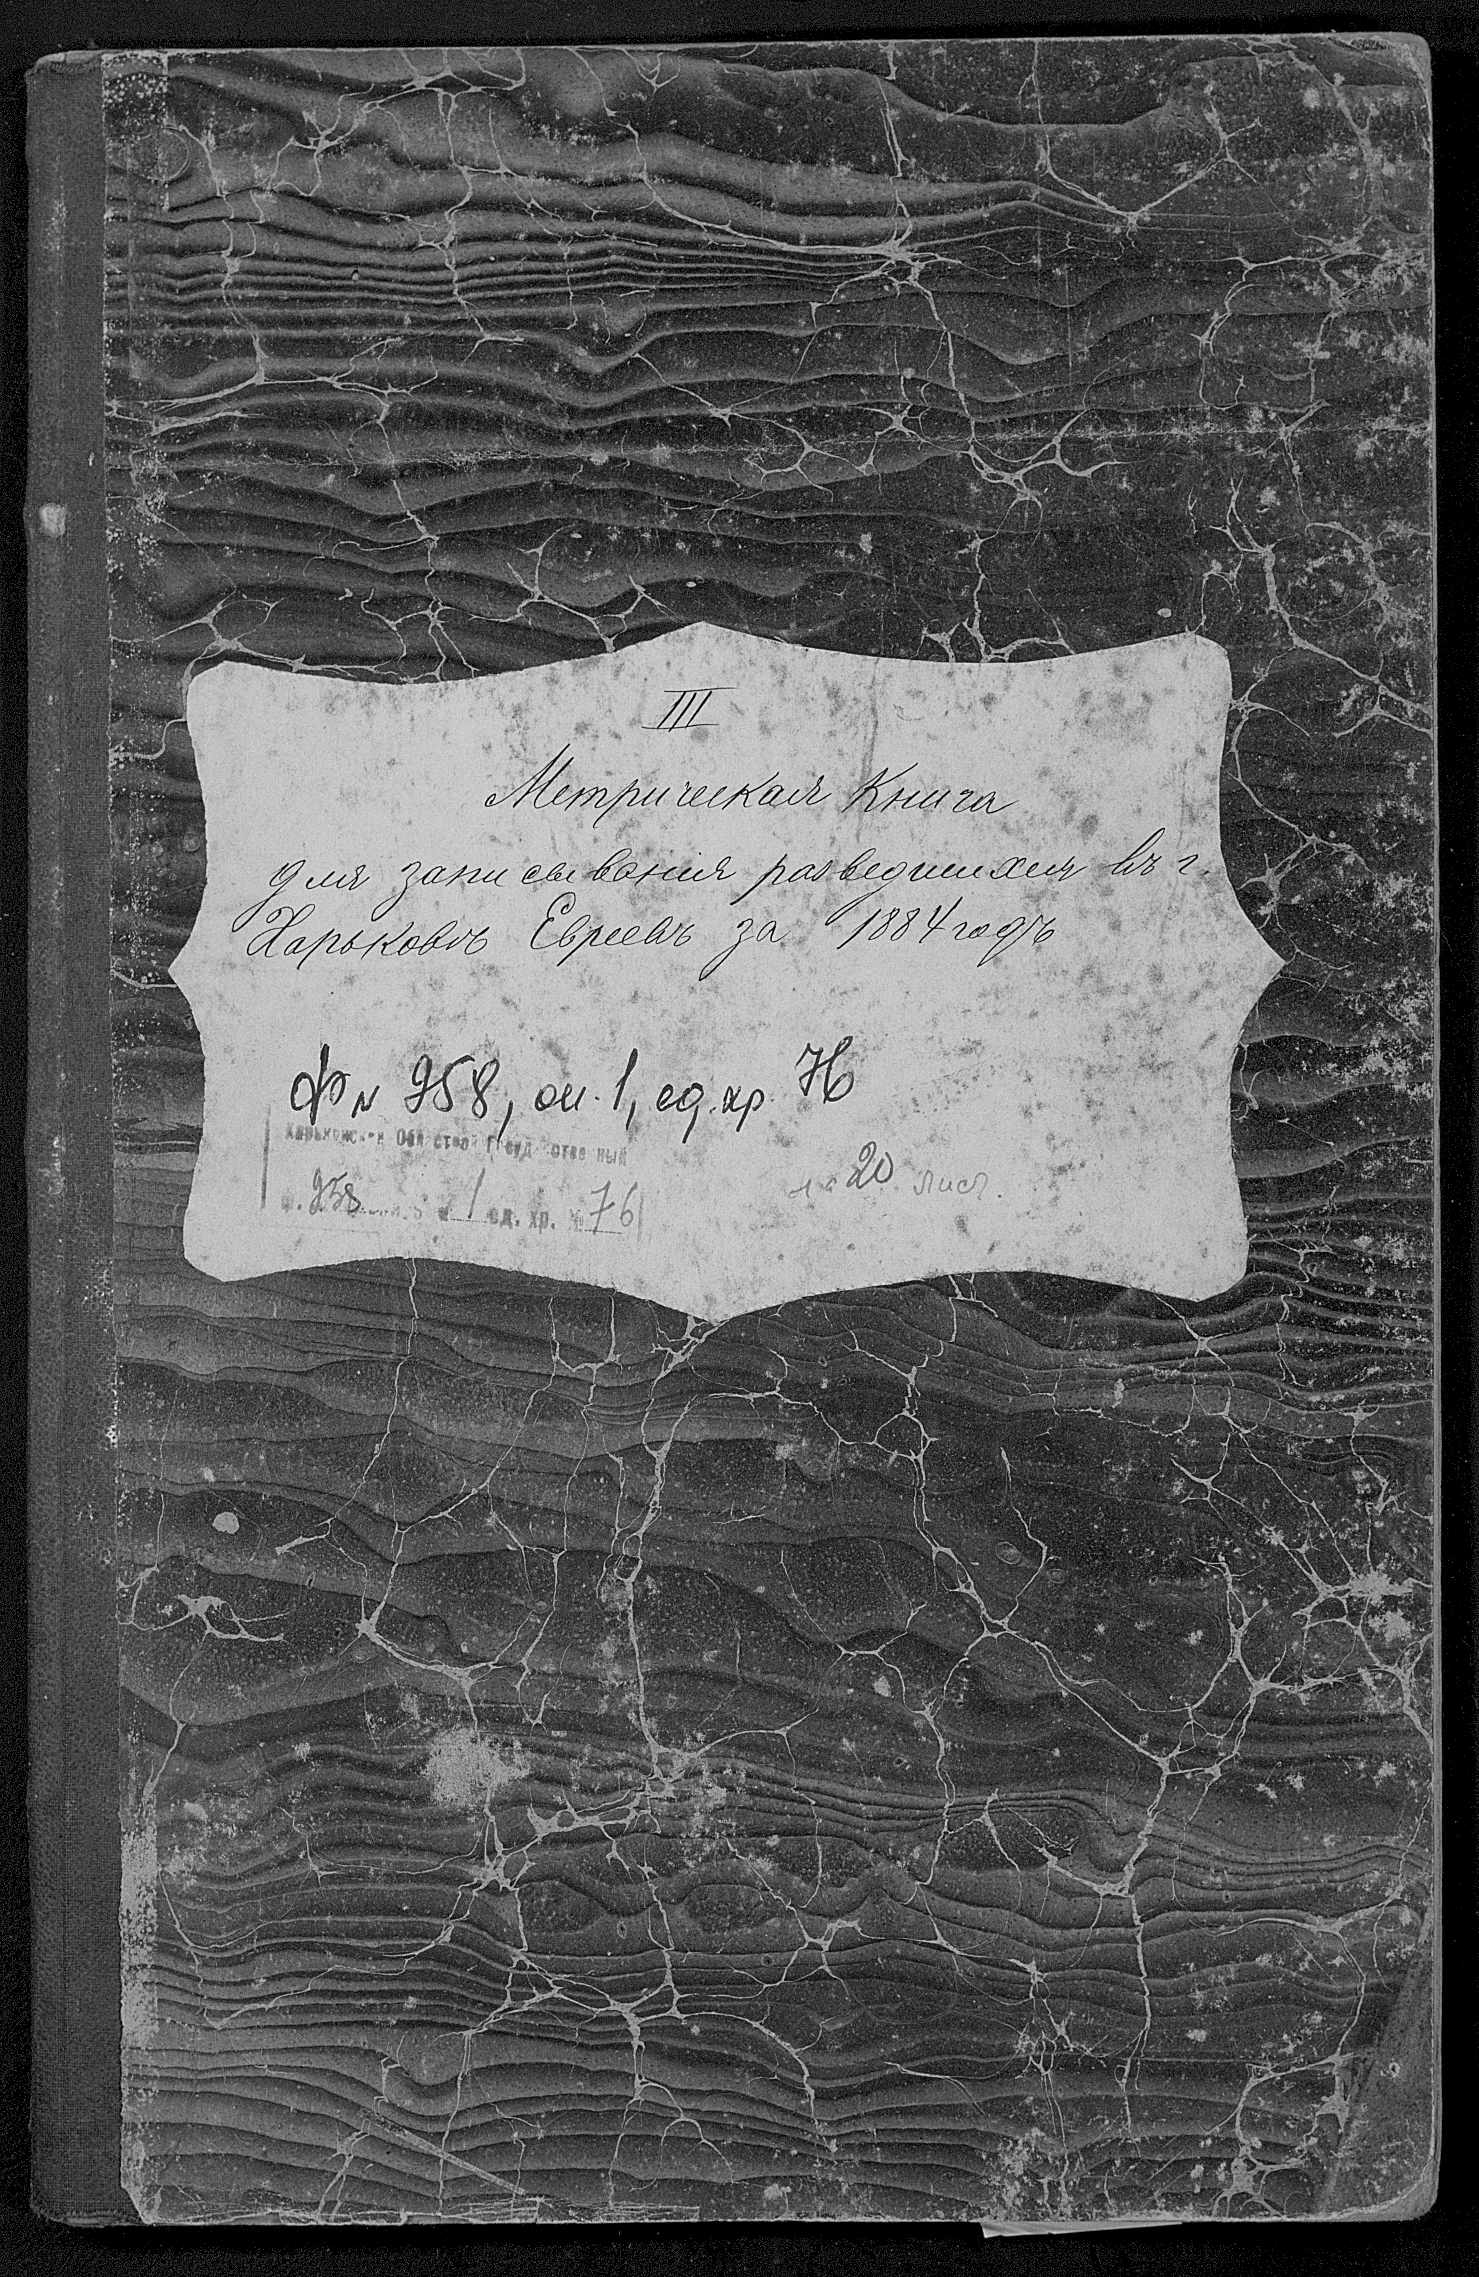 III
Метрическая Книга
для записывания разведшихся въ г.
Харьковѣ Евреевъ за 1884 годъ
Ф № 958, оп. 1, ед. хр. 76
Харьковский Областной Государственный
ф. 958 оп. № 1 ед. хр. № 76
на 20 лист.